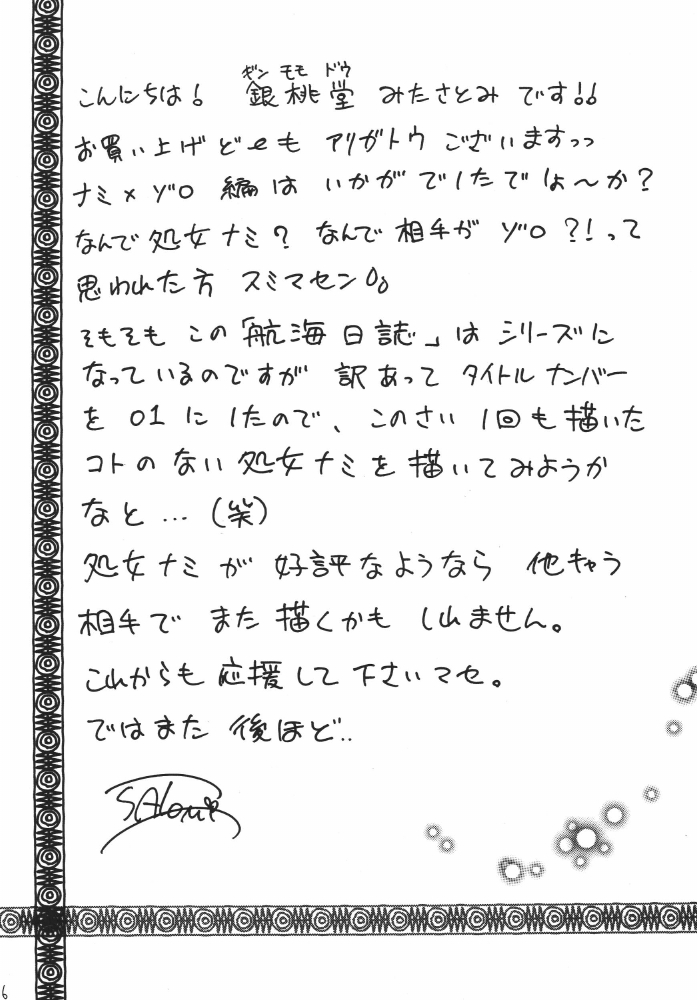 ギンモモドウ
こんにちは! 銀桃堂 みたさとみ です!!
お買い上げどーも アリガトウ ございますっっ
ナミ×ゾロ 編は いかが でしたでしょ〜か?
なんで 処女ナミ? なんで 相手が ゾロ?!って
思われた方 スミマセン
そもそも この「航海日誌」は シリーズに
なっているのですが 訳あって タイトルナンバー
を 01 に したので、このさい 1回も描いた
コトの ない 処女ナミを 描いてみようか
なと …(笑)
処女ナミが 好評なようなら 他キャラ
相手で また 描くかも しれません。
これからも 応援して下さいマセ。
ではまた 後ほど..
SAtomi
6